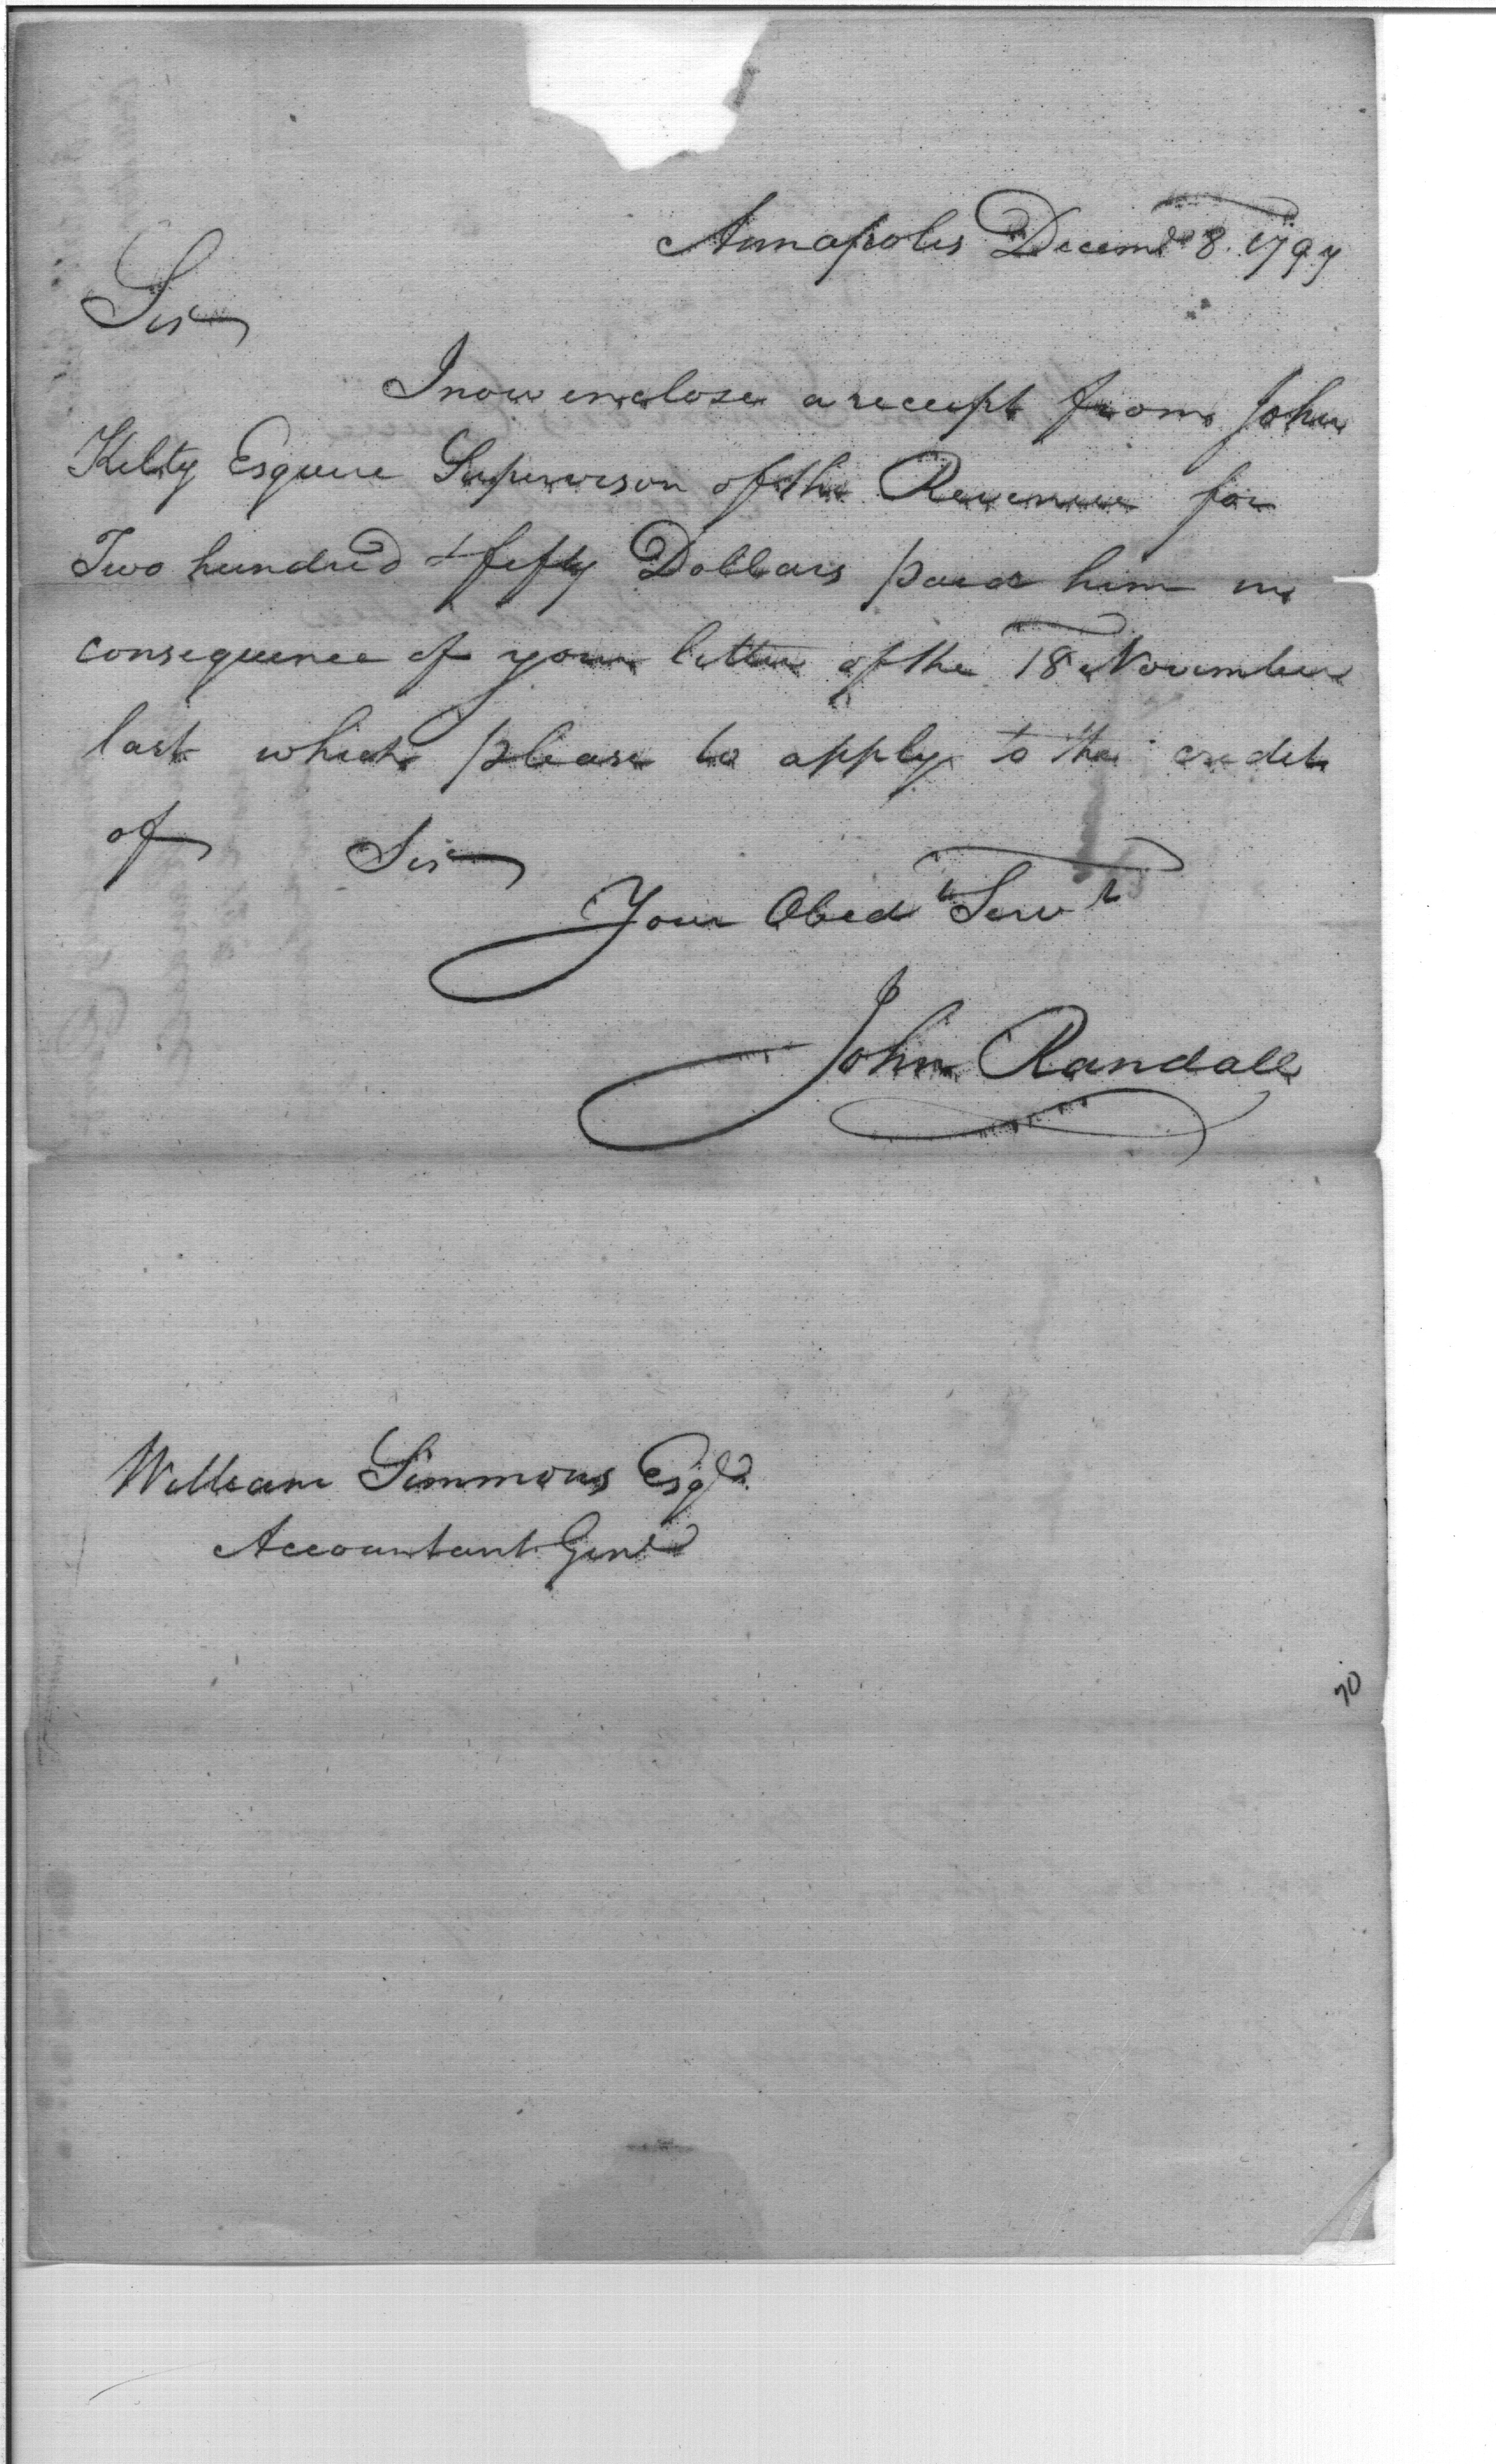 Annapolis Decemr 8. 1797
Sir
I now enclose a receipt from John
Kilty Esquire Supervisor of the Revenue for
Two hundred & fifty Dollars paid him in
consequence of your letter of the 18 November
last which please to apply to the credit
of Sir
Your Obedt Servt
John Randall
William Simmons Esqr.
Accountant Genl
70